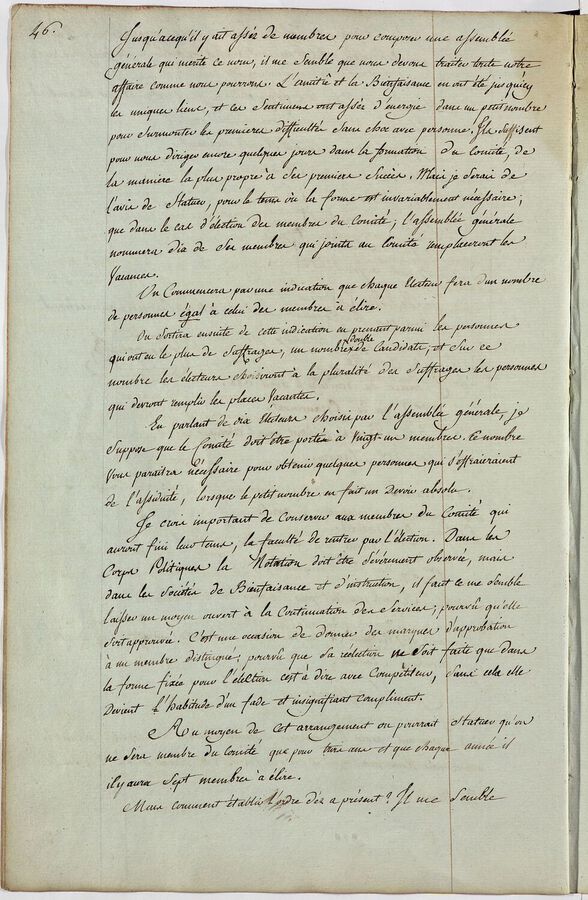 46.
Jusqu'acequ'il y ait assés de membres pour composer une assemblée
générale qui merite ce nom, il me semble que nous devons traiter toute notre
affaire comme nous pourrons. L'amitié et la Bienfaisance en ont été jusqu'icy
les uniques liens, et ces Sentimens ont assés d'énergie dans un petit nombre
pour surmonter les premieres difficultés sans choc avec personne. Ils suffisent
pour nous diriger encore quelques jours dans la formation du Comité, de
la maniere la plus propre à ses premiers Succès. Mais je serais de
l'avis de Statuer, pour le tems où la forme est invariablement nécessaire,
que dans le cas d'élection des membres du Comité, l'assemblée générale
nommera dix de ses membres qui joints au Comité rempliceront les
Vacances.
On Commencera par une indication que chaque Electeur fera d'un nombre
de personnes égal à celui des membres à élire.
On Sortira ensuite de cette indication en prenant parmi les personnes
qui ont eu le plus de Suffrages, un nombre double de Candidats, et sur ce
nombre les électeurs choisiront à la pluralité des Suffrages les personnes
qui devront remplir les places Vacantes.
En parlant de dix Electeurs choisis par l'assemblée générale, je
Suppose que le Comité doit être portée à Vingt-un membres. Ce nombre
Vous paraîtra nécéssaire pour obtenir quelques personnes qui s'effraieraient
de l'assiduité, lorsque le petit nombre en fait un Devoir absolu.
Je crois important de Conserver aux membres du Comité qui
auront fini leur tems, la faculté de rentrer par l'élection. Dans les
Corps Politiques la Rotation doit être sévèrement observée, mais
dans les Sociétés de Bienfaisance et d'instruction, il faut ce me Semble
laisser un moyen ouvert à la Continuation des Services; pourvû qu'elle
soit approuvée. C'est une occasion de donner des marques d'approbation
à un membre distingué; pourvû que sa réélection ne soit faite que dans
la forme fixée pour l'élection c'est à dire avec Compétiteurs, Sans cela elle
Devient l'habitude d'un fade et insignifiant compliment.
Au moyen de cet arrangement on pourrait Statuer qu'on
ne sera membre du Comité que pour trois ans et que chaque année il
il y aura Sept membres à élire.
Mais comment établir l'ordre dès a présent? Il me Semble